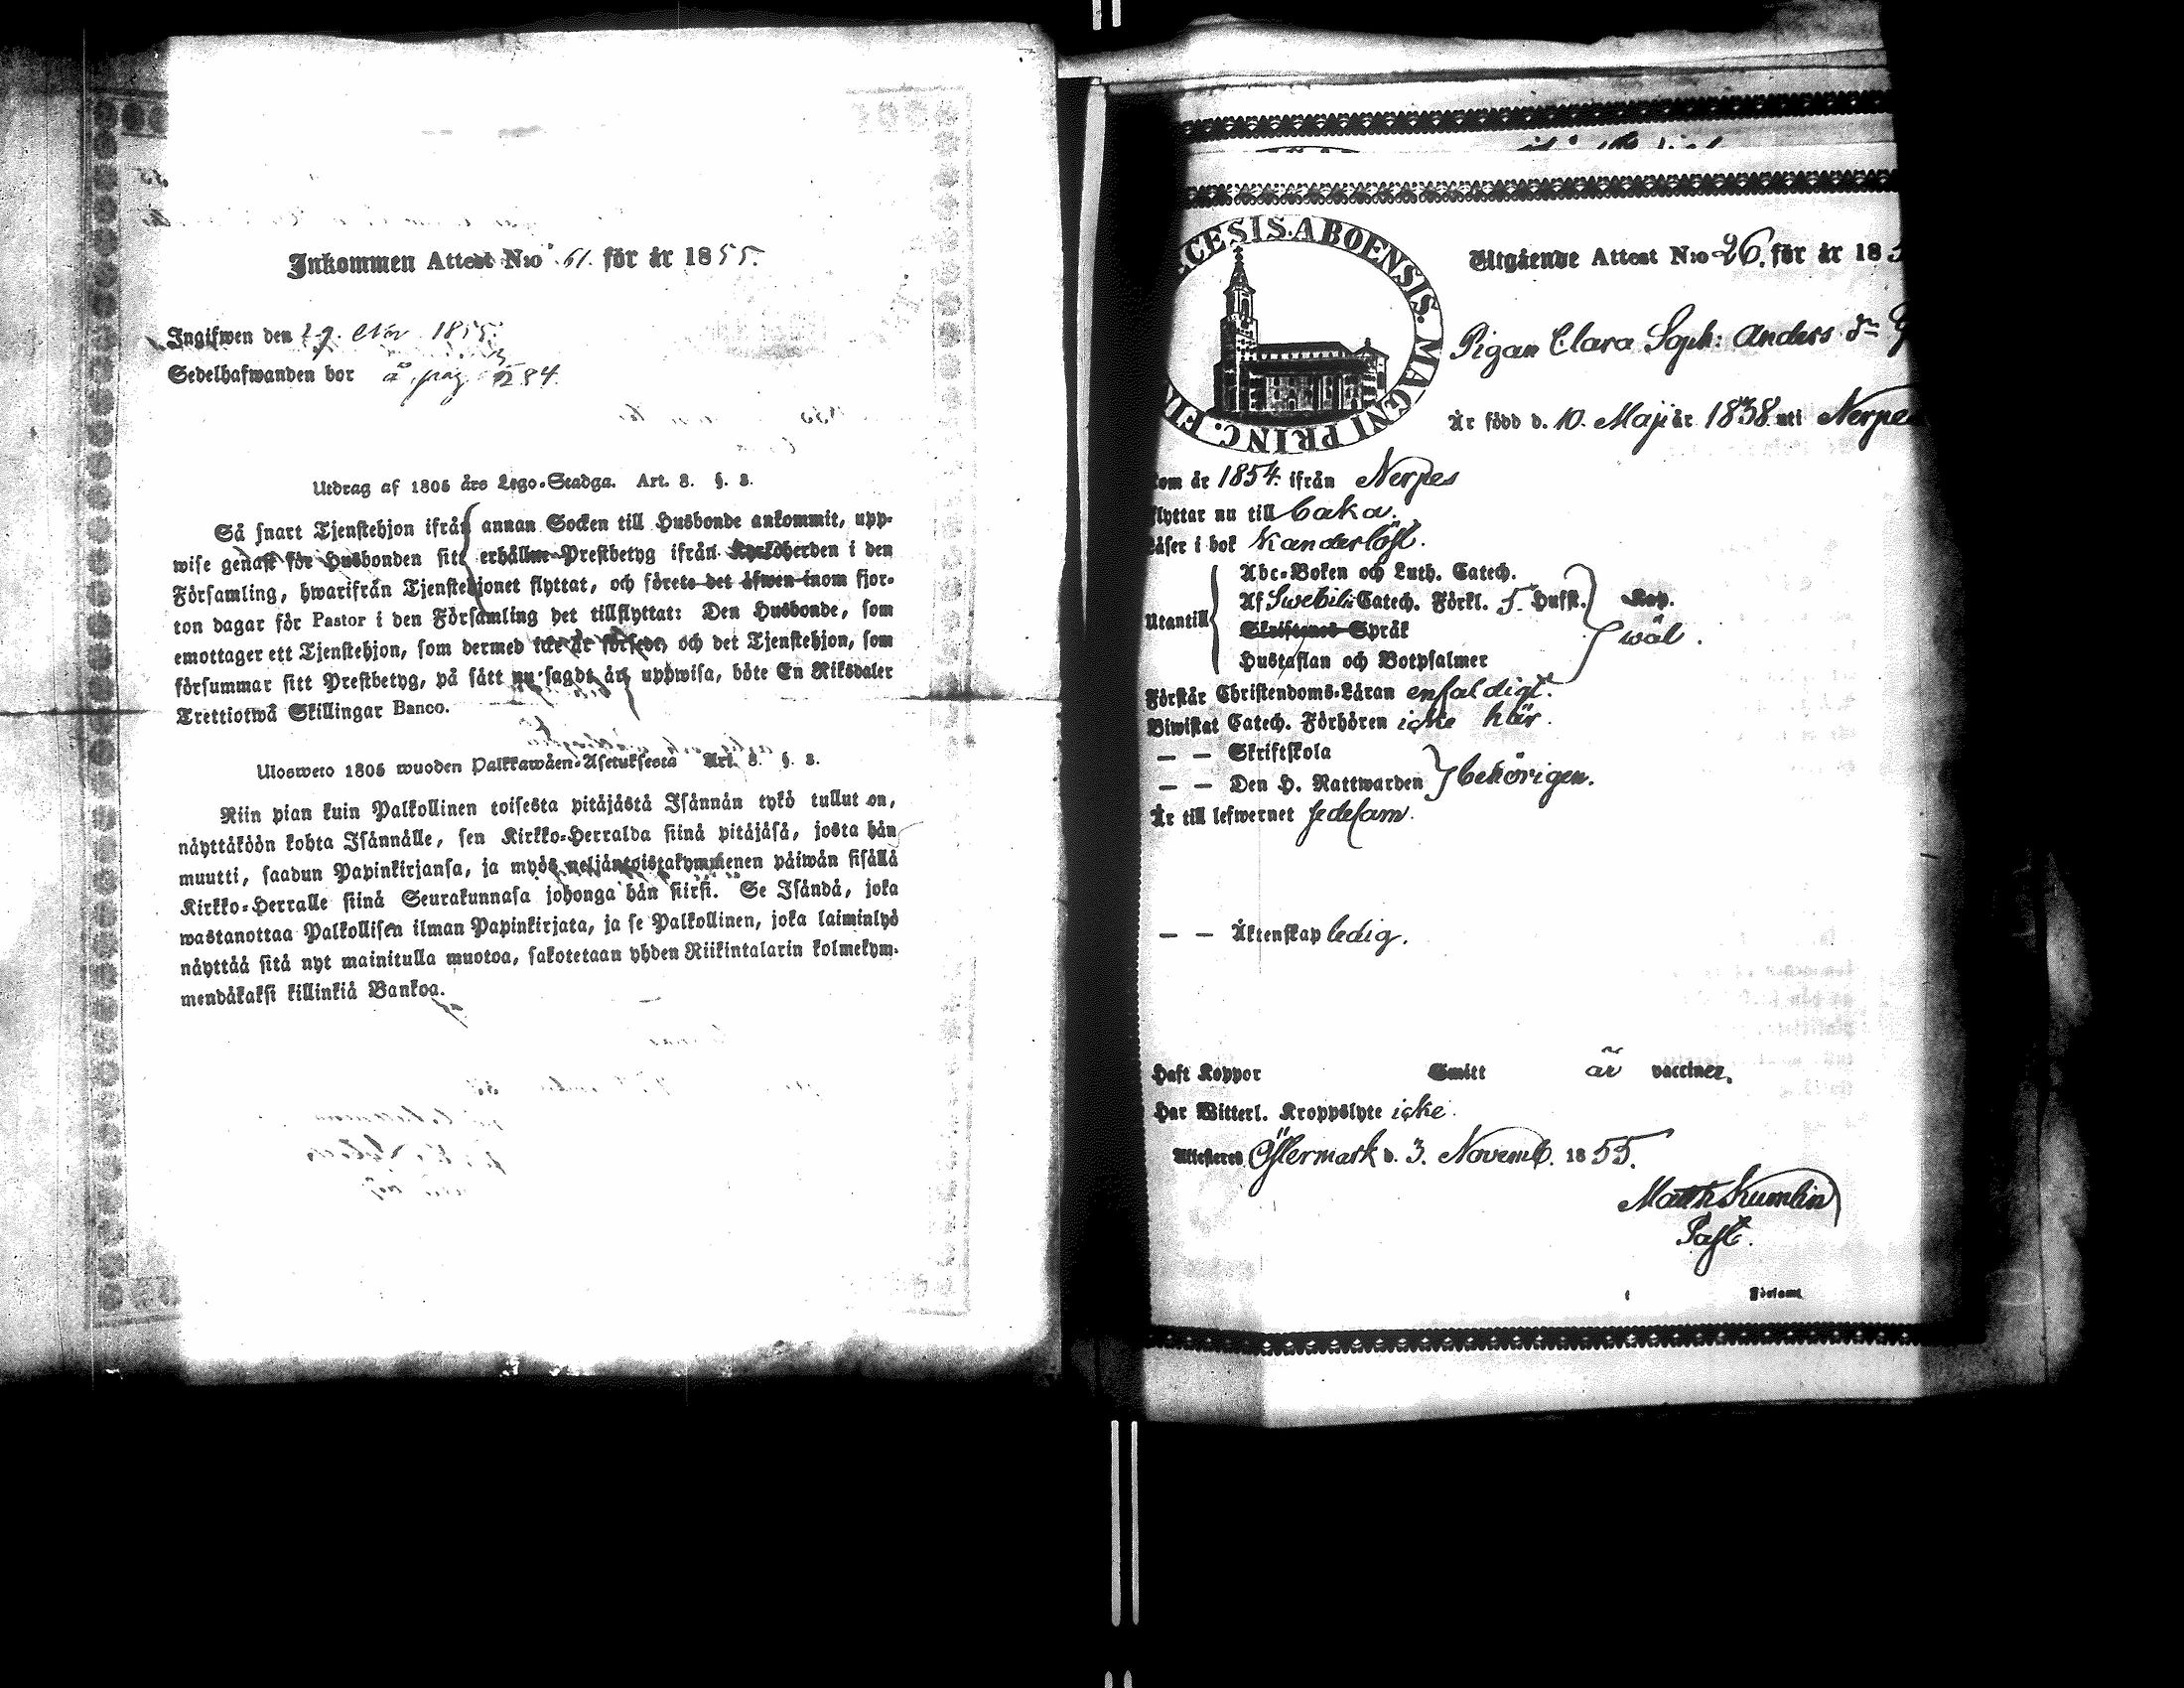 Inkommen Attest N:o 61. för år 1855.
Ingifwen den 29. Nov 1855.
Sedelhafwanden bor å pag. 284.
Utdrag af 1805 års Lego-Stadga. Art. 8. §. 3.
Så snart Tjenstehjon ifrån annan Socken till Husbonde ankommit, upp-
wise genast för Husbonden sitt erhållne Prestbetyg ifrån Kyrkoherden i den
Församling, hwarifrån Tjenstehjonet flyttat, och förete det äfwen inom fjor-
ton dagar för Pastor i den Församling det tillflyttat: Den Husbonde, som
emottager ett Tjenstehjon, som dermed icke är försedt, och det Tjenstehjon, som
försummar sitt Prestbetyg, på sätt nu sagdt är, uppwisa, böte En Riksdaler
Trettiotwå Skillingar Banco.
Ulosweto 1805 wuoden Palkkawäen-Asetuksesta Art. 8. §. 3.
Niin pian kuin Palkollinen toisesta pitäjästä Isännän tykö tullut on,
näyttäköön kohta Isännälle, sen Kirkko-Herralda siinä pitäjäsä, josta hän
muutti, saadun Papinkirjansa, ja myös neljäntoistakymmenen päiwän sisällä
Kirkko-Herralle siinä Seurakunnasa johonga hän siirsi. Se Isändä, joka
wastanottaa Palkollisen ilman Papinkirjata, ja se Palkollinen, joka laiminlyö
näyttää sitä nyt mainitulla muotoa, sakotetaan yhden Riikintalarin kolmekym-
mendäkaksi killinkiä Bankoa.
CESIS. ABOENSIS. MAGNI PRINC. FIN
Utgående Attest N:o 26. för år 185
Pigan Clara Soph: Anders dr
Är född d. 10. Maji år 1838 uti Nerpes
kom år 1854. ifrån Nerpes
flyttar nu till
Läser i bok klanderlöst.
Utantill
Abc-Boken och Luth. Catech.
Af Swebilii Catech. Förkl. 5. Hufst. Kap.
Skriftenes Språk
wäl.
Hustaflan och Botpsalmer
Förstår Christendoms-Läran enfaldigt.
Biwistat Catech. Förhören icke här.
— — Skriftskola
— — Den H. Nattwarden behörigen.
Är till lefwernet sedesam.
— — Äktenskap ledig.
Haft Koppor Smitt är vaccinez.
Har Witterl. Kroppslyte icke.
Attesteres Östermark d. 3. Novemb. 1855.
Matth Kumlin
Past.